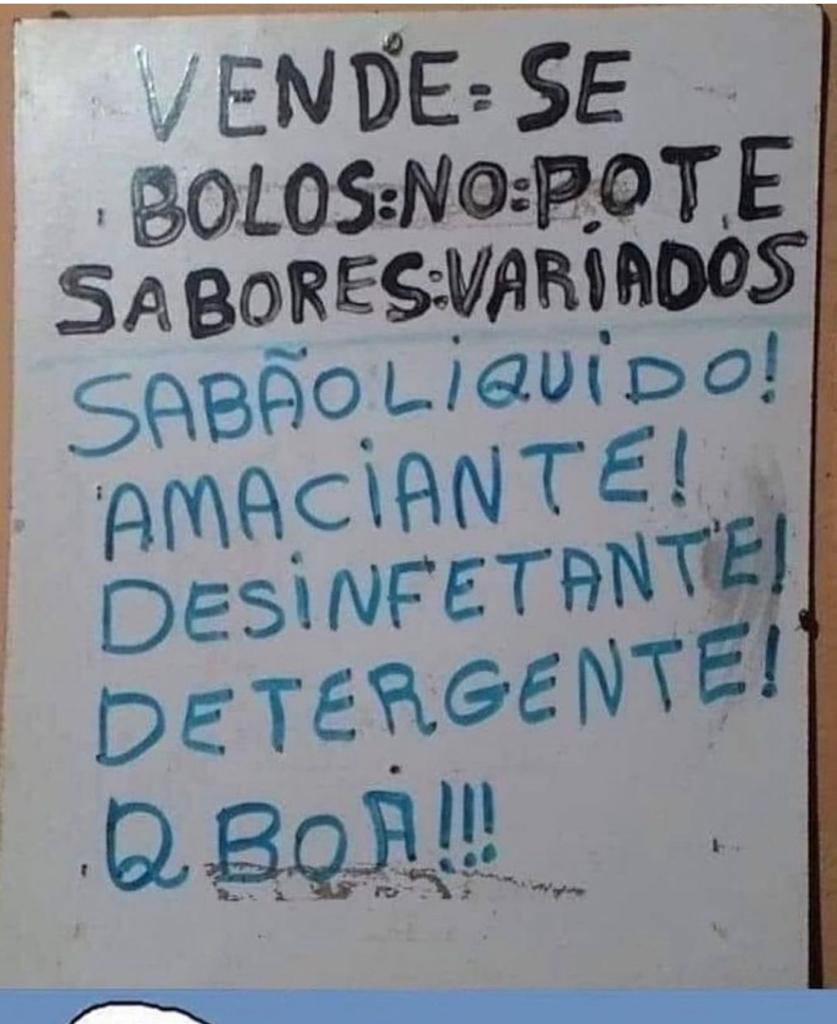 VENDE=SE
BOLOS:NO:POTE
SABORES:VARIADOS
SABÃO LIQUIDO!
AMACIANTE!
DESINFETANTE!
DETERGENTE!
Q BOA!!!